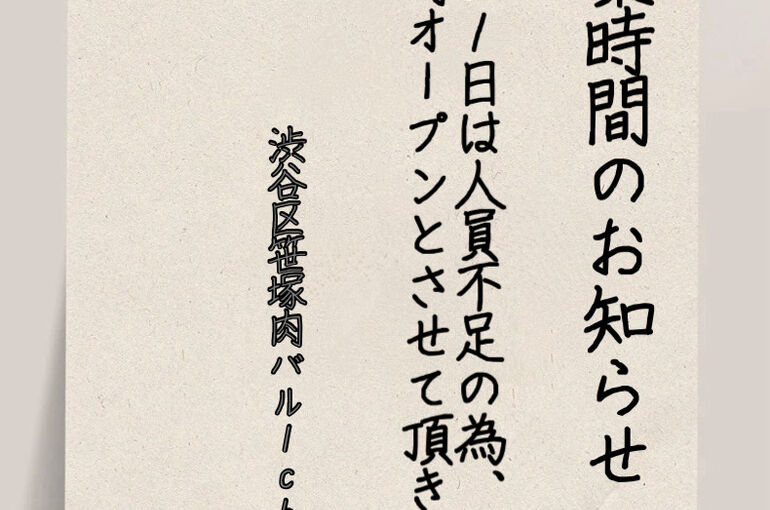 業時間のお知らせ
1日は人員不足の為、
オープンとさせて頂き
渋谷区笹塚肉バル